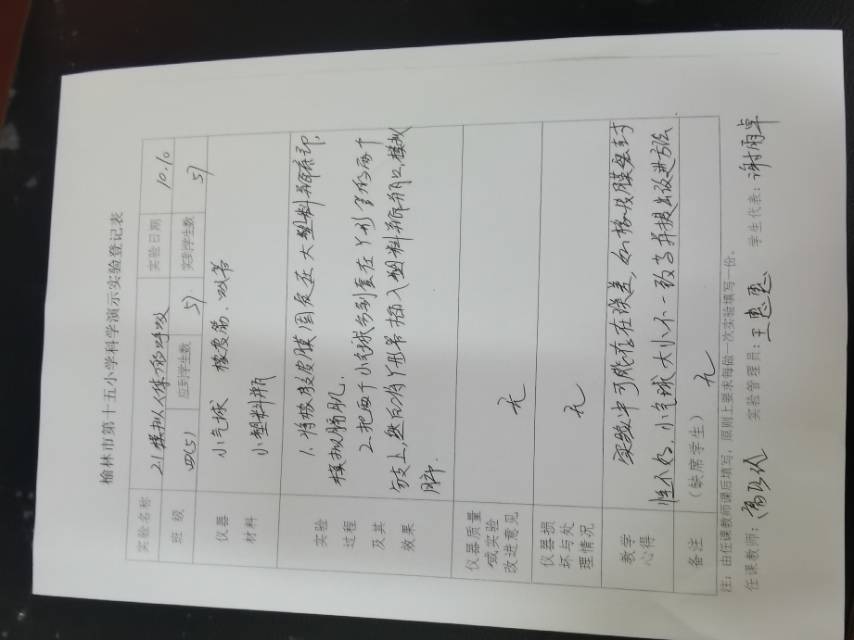 榆林市第十五小学科学演示实验登记表
实验名称 21模拟人体的呼吸 实验日期 10.10
班级 四(5) 应到学生数 51 实到学生数 51
仪器材料 小气球 橡皮筋、吸管
小塑料瓶
实验过程及其效果 1.将橡胶皮膜固定在大塑料瓶底部,
模拟膈肌.
2.把两个小气球分别套在Y形管的两个
分支上,然后将Y形管插入塑料瓶瓶口,模拟
肺.
仪器质量或实验改进意见 无
仪器损坏与处理情况 无
教学心得 实验中可能存在误差,如橡皮膜密封
性不好,小气球大小不一致等并提出改进方法.
备注 (缺席学生) 无
注:由任课教师课后填写,原则上要求每做一次实验填写一份。
任课教师: 实验管理员:王惠惠 学生代表:谢雨卓